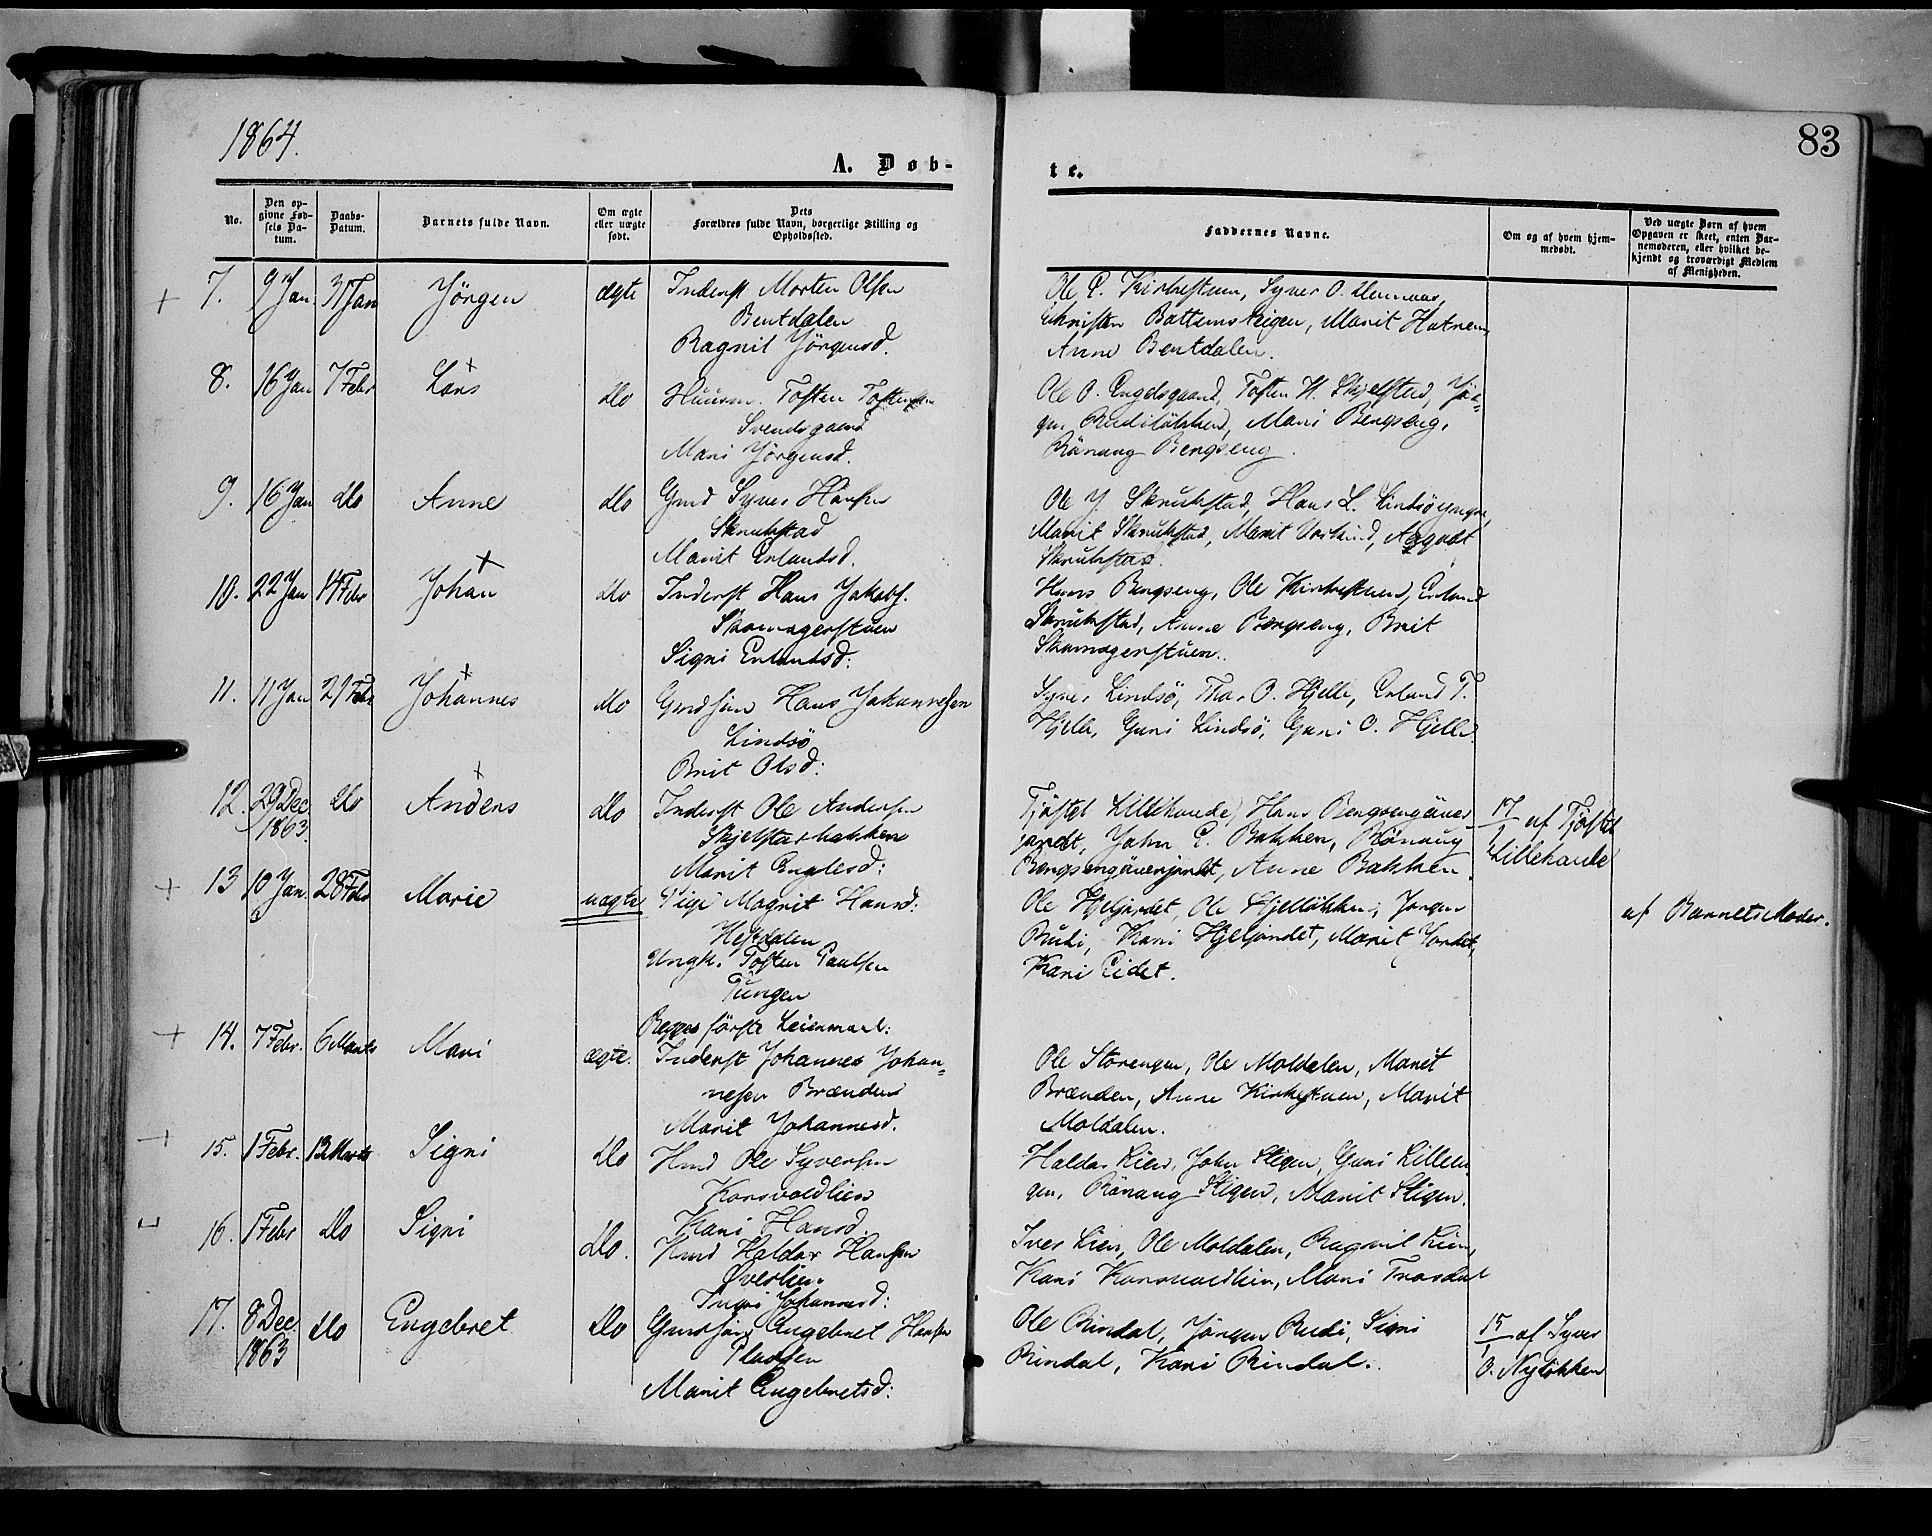 1864.
83
A. Døb-
te.
No.
Den op-
givne Fød-
sels Da-
tum.
Daabs-
Datum.
Barnets fulde Navn.
Om ægte
eller uægte
født.
Dets
Forældres fulde Navn, borgerlige Stilling og
Opholdssted.
Faddernes Navne.
Om og af hvem hjem-
medøbt.
Ved uægte Børn af hvem
Opgaven er skeet, enten Bar-
nemoderen, eller hvilket be-
kjendt og troværdigt Medlem
af Menigheden.
7. 9 Jan. 31 Jan Jörgen ægte Inderst Morten Olsen
Bentdalen
Ragnil Jörgensd.
Ole P. Kirkestuen, Syver O.
Christen Battumsteigen, Marit
Anne Bentdalen.
8. 16 Jan 7 Febr Lars do Huusm. Tosten Tostensen
Svendsgaard
Mari Jörgensd.
Ole O. Engelsgaard, Tosten H. Skjelstad, Jör-
gen Rudilökken, Mari Bergseng,
Rönaug Bergseng.
9. 16 Jan do Anne do Gmd Syver Hansen
Skrukstad
Marit Erlandsd.
Ole J. Skrukstad, Hans L. Lindsö
Marit Skrukstad, Marit
Skrukstad.
10. 22 Jan 14 Febr Johan do Inderst Hans Jakobs.
Skomagerstuen
Signi Erlandsd:
Hans Bergseng, Ole Kirkestuen, Erland
Skrukstad, Anne Bergseng, Brit
Skomagerstuen.
11. 11 Jan 21 Febr Johannes do Gmdsön Hans Johannesen
Lindsö
Brit Olsd:
Syver Lindsö, Thor O. Hjelle, Erland T.
Hjelle, Guri Lindsö, Guri O. Hjelle.
12. 29 Dec. 1863. do Anders do Inderst Ole Andersen
Skjelstadbakken
Marit Englesd:
Tjöstel Lillehaave, Hans
jordet, John E. Bakken, Rönaug
Anne Bakken.
17/1 af Tjöstel
Lillehaave
13 10 Jan. 28 Febr Marie uægte Pige Magnit Hansd:
Heldalen
Ungk. Tosten Paulsen
Tungen
Begges förste Leiermaal:
Ole Hjeljordet, Ole Hjellökken, Jörgen
Rudi, Kari Hjeljordet, Marit Jordet,
Kari Eidet.
af Barnets Moder.
14. 7 Febr. 6 Marts Mari ægte. Inderst Johannes Johan-
nesen Brænden
Marit Johannesd.
Ole Storengen, Ole Moldalen, Marit
Brænden, Anne Kirkestuen, Marit
Moldalen.
15. 1 Febr. 13 Marts Signi do Hmd Ole Syversen
Korsvoldlien
Kari Hansd.
Haldor Lien, John Stigen, Guri Lilleen-
gen, Rönaug Stigen, Marit Stigen.
16. 1 Febr do Signi do. Hmd Haldor Hansen
Øverlien
Ingri Johannesd:
Iver Lien, Ole Moldalen, Ragnil Lien,
Kari Korsvoldlien, Mari Trosdal
17. 8 Dec. 1863 do Engebret do Gmdsön Engebret Hansen
Pladsen
Marit Engebretsd:
Ole Rindal, Jörgen Rudi, Signi
Rindal, Kari Rindal.
15/1 af Syver
O. Nylökken